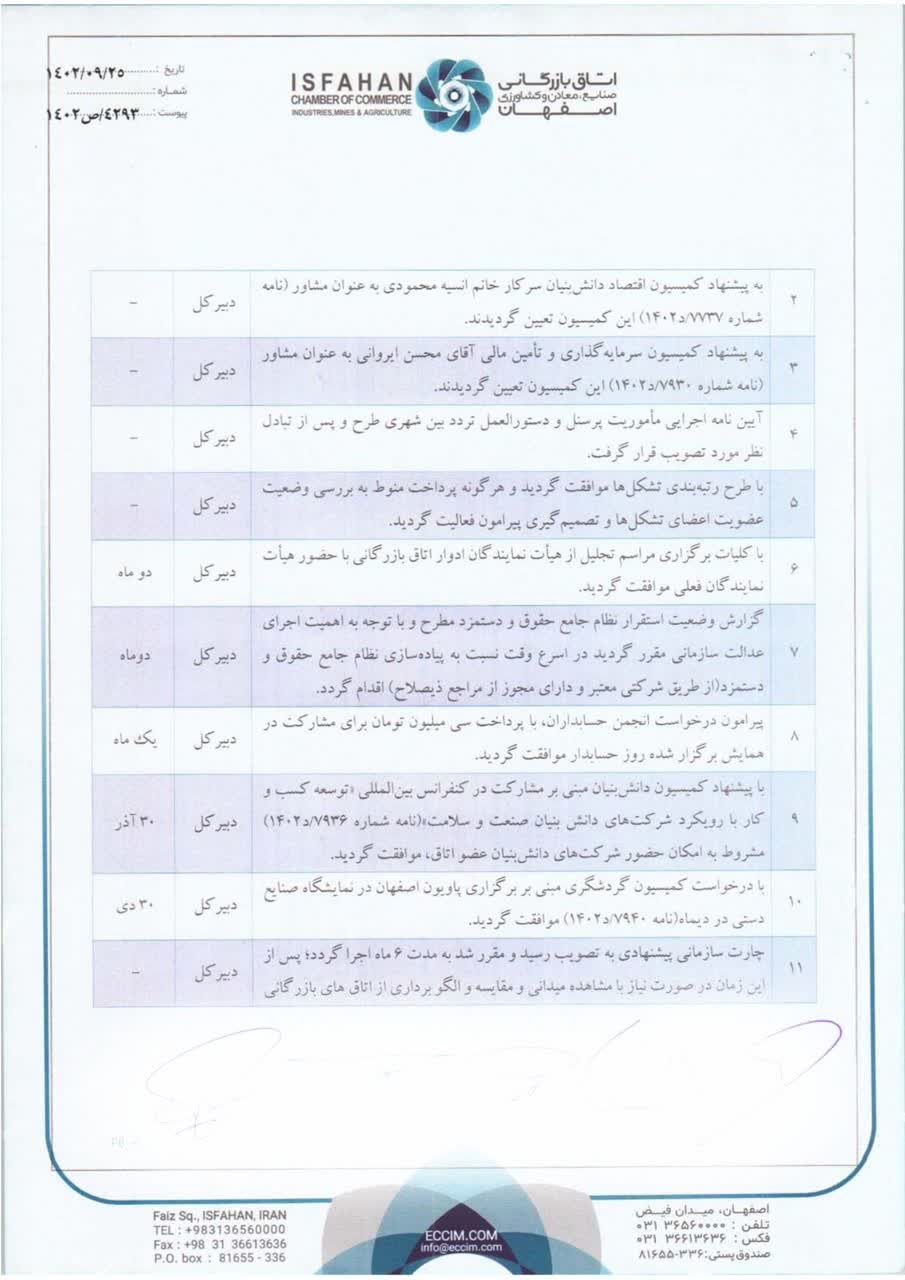 تاریخ :..........۱۴۰۲/۰۹/۲۵
شماره :....................
پیوست :.....۴۲۹۳/ص۱۴۰۲
ISFAHAN
CHAMBER OF COMMERCE
INDUSTRIES,MINES & AGRICULTURE
اتاق بازرگانی
صنایع، معادن و کشاورزی
اصفهان
۲
به پیشنهاد کمیسیون اقتصاد دانش‌بنیان سرکار خانم انسیه محمودی به عنوان مشاور (نامه
شماره ۷۷۳۷/د۱۴۰۲) این کمیسیون تعیین گردیدند.
دبیر کل
-
۳
به پیشنهاد کمیسیون سرمایه‌گذاری و تأمین مالی آقای محسن ایروانی به عنوان مشاور
(نامه شماره ۷۹۳۰/د۱۴۰۲) این کمیسیون تعیین گردیدند.
دبیر کل
-
۴
آیین نامه اجرایی مأموریت پرسنل و دستورالعمل تردد بین شهری طرح و پس از تبادل
نظر مورد تصویب قرار گرفت.
دبیر کل
-
۵
با طرح رتبه‌بندی تشکل‌ها موافقت گردید و هرگونه پرداخت منوط به بررسی وضعیت
عضویت اعضای تشکل‌ها و تصمیم‌گیری پیرامون فعالیت گردید.
دبیر کل
-
۶
با کلیات برگزاری مراسم تجلیل از هیأت نمایندگان ادوار اتاق بازرگانی با حضور هیأت
نمایندگان فعلی موافقت گردید.
دبیر کل
دو ماه
۷
گزارش وضعیت استقرار نظام جامع حقوق و دستمزد مطرح و با توجه به اهمیت اجرای
عدالت سازمانی مقرر گردید در اسرع وقت نسبت به پیاده‌سازی نظام جامع حقوق و
دستمزد(از طریق شرکتی معتبر و دارای مجوز از مراجع ذیصلاح) اقدام گردد.
دبیر کل
دوماه
۸
پیرامون درخواست انجمن حسابداران، با پرداخت سی میلیون تومان برای مشارکت در
همایش برگزار شده روز حسابدار موافقت گردید.
دبیر کل
یک ماه
۹
با پیشنهاد کمیسیون دانش‌بنیان مبنی بر مشارکت در کنفرانس بین‌المللی «توسعه کسب و
کار با رویکرد شرکت‌های دانش بنیان صنعت و سلامت»(نامه شماره ۷۹۳۶/د۱۴۰۲)
مشروط به امکان حضور شرکت‌های دانش‌بنیان عضو اتاق، موافقت گردید.
دبیر کل
۳۰ آذر
۱۰
با درخواست کمیسیون گردشگری مبنی بر برگزاری پاویون اصفهان در نمایشگاه صنایع
دستی در دیماه(نامه ۷۹۴۰/د۱۴۰۲) موافقت گردید.
دبیر کل
۳۰ دی
۱۱
چارت سازمانی پیشنهادی به تصویب رسید و مقرر شد به مدت ۶ ماه اجرا گردد؛ پس از
این زمان در صورت نیاز با مشاهده میدانی و مقایسه و الگو برداری از اتاق های بازرگانی
دبیر کل
-
Faiz Sq., ISFAHAN, IRAN
TEL : +983136560000
Fax : +98 31 36613636
P.O. box : 81655 - 336
ECCIM.COM
info@eccim.com
اصفهان، میدان فیض
تلفن : ۳۶۵۶۰۰۰۰ ۰۳۱
فکس : ۳۶۶۱۳۶۳۶ ۰۳۱
صندوق پستی:۳۳۶-۸۱۶۵۵